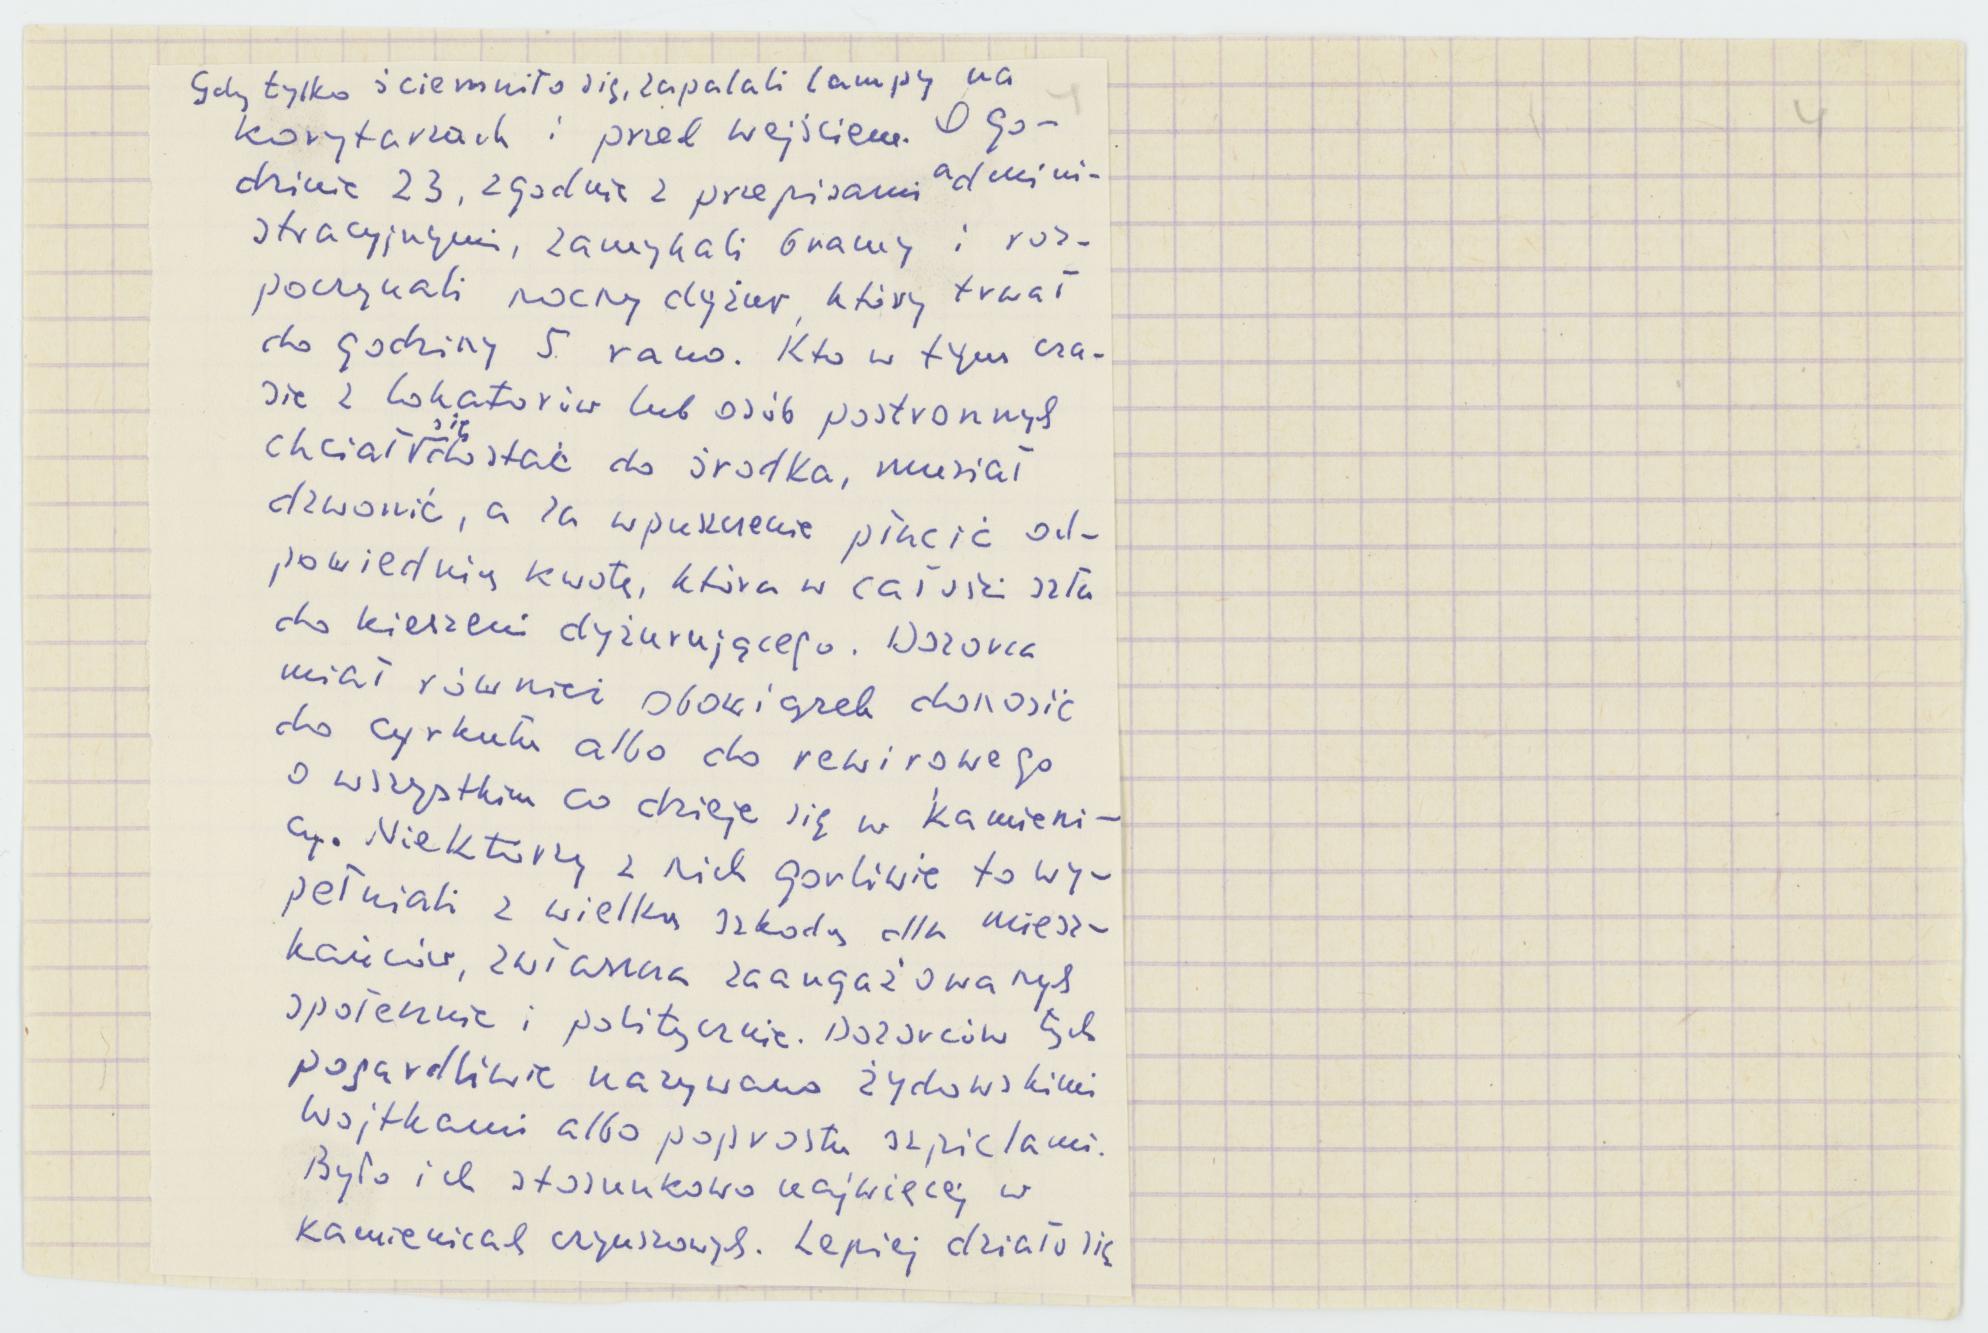 Gdy tylko ściemniło się, zapalali lampy na
korytarzach i przed wejściem. O go-
dzinie 23, zgodnie z przepisami admini-
stracyjnymi, zamykali bramy i roz-
poczynali nocny dyżur, który trwał
do godziny 5 rano. Kto w tym cza-
sie z lokatorów lub osób postronnych
chciał się dostać do środka, musiał
dzwonić, a za wpuszczenie płacić od-
powiednią kwotę, która w całości szła
do kieszeni dyżurującego. Dozorca
miał również obowiązek donosić
do cyrkułu albo do rewirowego
o wszystkim co dzieje się w kamieni-
cy. Niektórzy z nich gorliwie to wy-
pełniali z wielką szkodą dla miesz-
kańców, zwłaszcza zaangażowanych
społecznie i politycznie. Dozorców tych
pogardliwie nazywano żydowskimi
wojtkami albo poprostu szpiclami.
Było ich stosunkowo najwięcej w
kamienicach czynszowych. Lepiej działo się
4
4